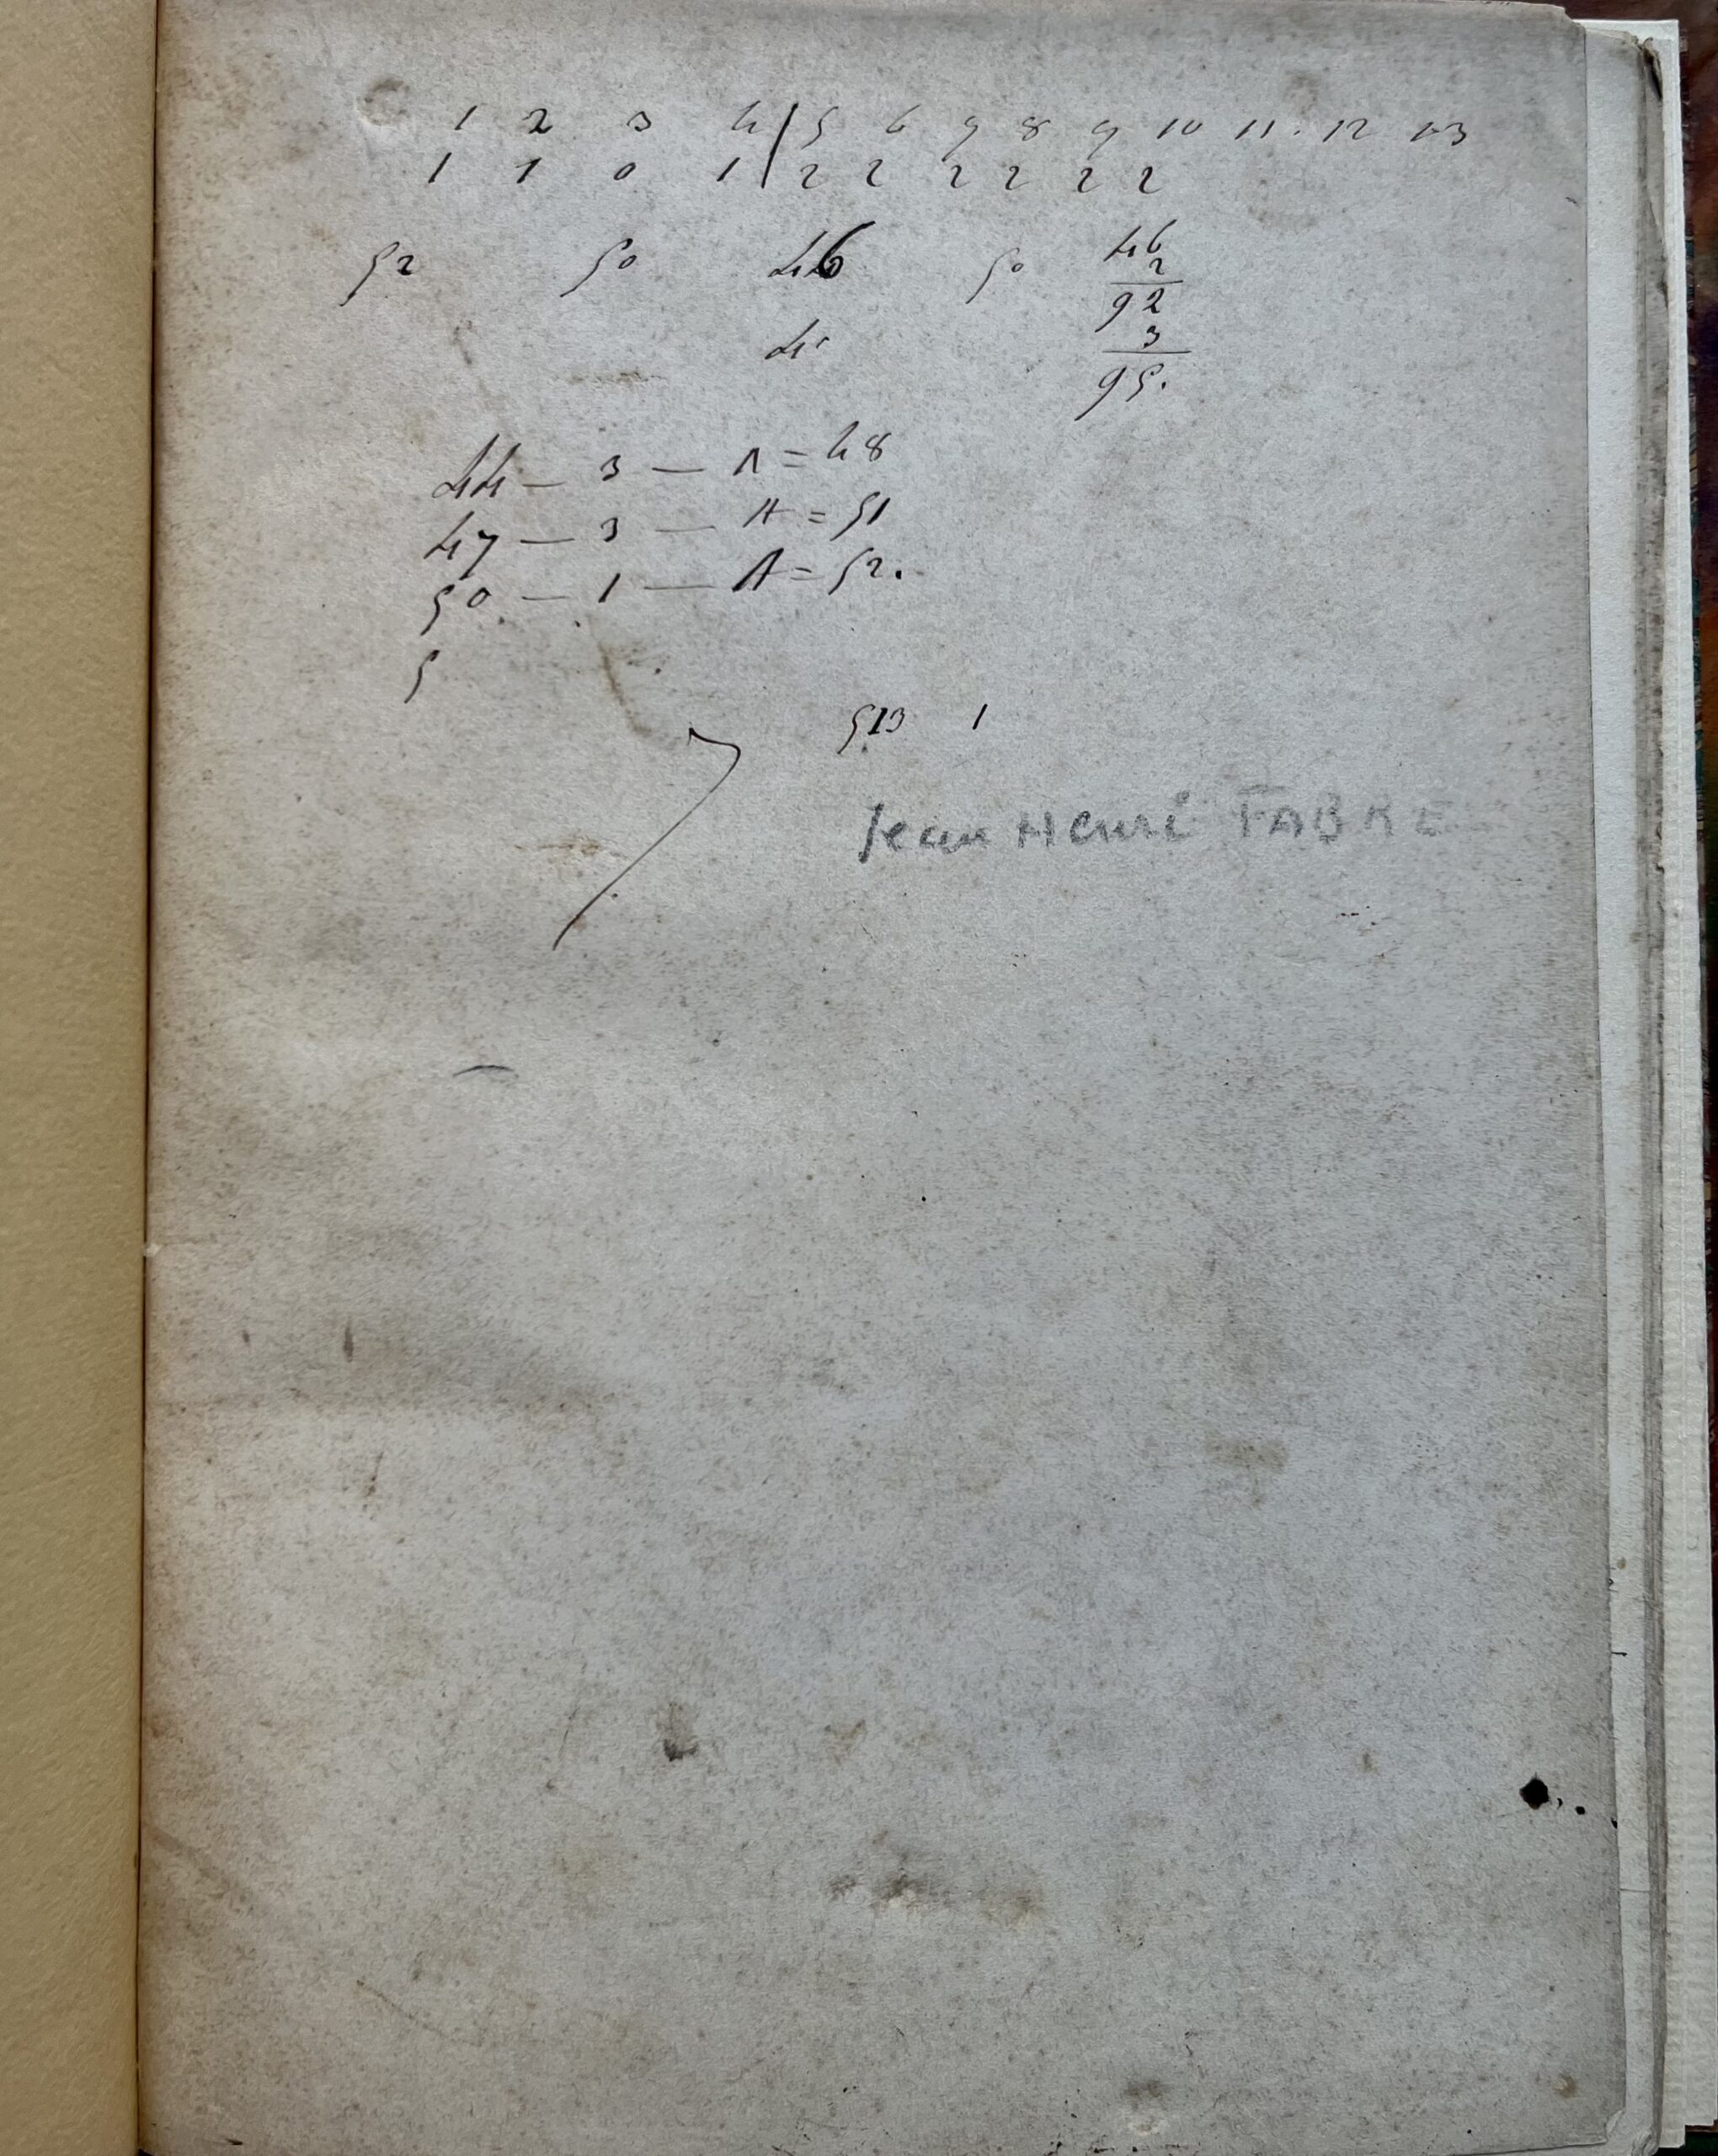 1 2 3 4 5 6 7 8 9 10 11. 12 13
1 1 0 1 2 2 2 2 2 2
52 50 46 50 46
2
92
4
3
95.
44 — 3 — 1 = 48
47 — 3 — 1 = 51
50 — 1 — 1 = 52.
5
513 1
Jean Henri FABRE